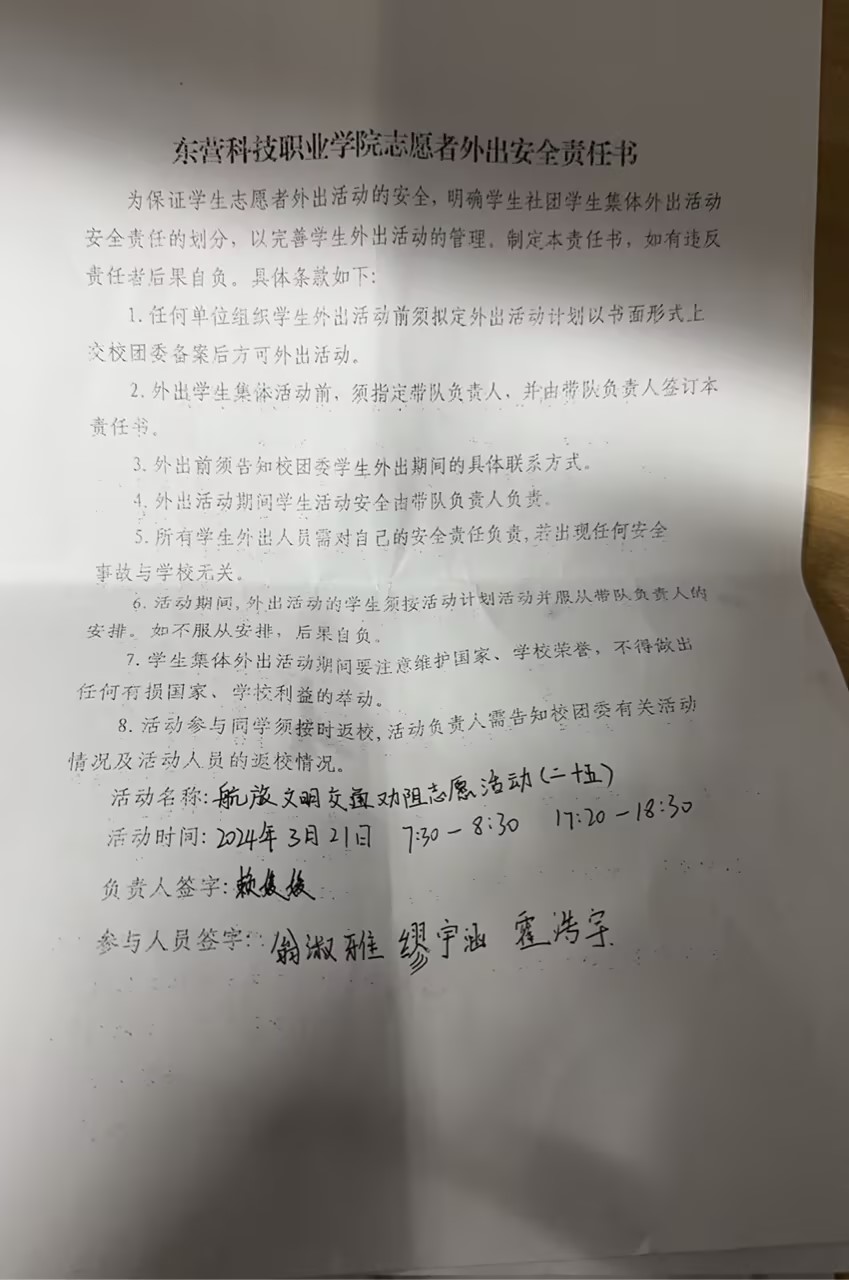 东营科技职业学院志愿者外出安全责任书
为保证学生志愿者外出活动的安全，明确学生社团学生集体外出活动
安全责任的划分，以完善学生外出活动的管理。制定本责任书，如有违反
责任者后果自负。具体条款如下：
1. 任何单位组织学生外出活动前须拟定外出活动计划以书面形式上
交校团委备案后方可外出活动。
2. 外出学生集体活动前，须指定带队负责人，并由带队负责人签订本
责任书。
3. 外出前须告知校团委学生外出期间的具体联系方式。
4. 外出活动期间学生活动安全由带队负责人负责。
5. 所有学生外出人员需对自己的安全责任负责，若出现任何安全
事故与学校无关。
6. 活动期间，外出活动的学生须按活动计划活动并服从带队负责人的
安排。如不服从安排，后果自负。
7. 学生集体外出活动期间要注意维护国家、学校荣誉，不得做出
任何有损国家、学校利益的举动。
8. 活动参与同学须按时返校，活动负责人需告知校团委有关活动
情况及活动人员的返校情况。
活动名称：航旅文明交通劝阻志愿活动（二十五）
活动时间：2024年3月21日 7:30－8:30 17:20－18:30
负责人签字：赖媛媛
参与人员签字：翁淑雅 缪宇涵 霍浩宇